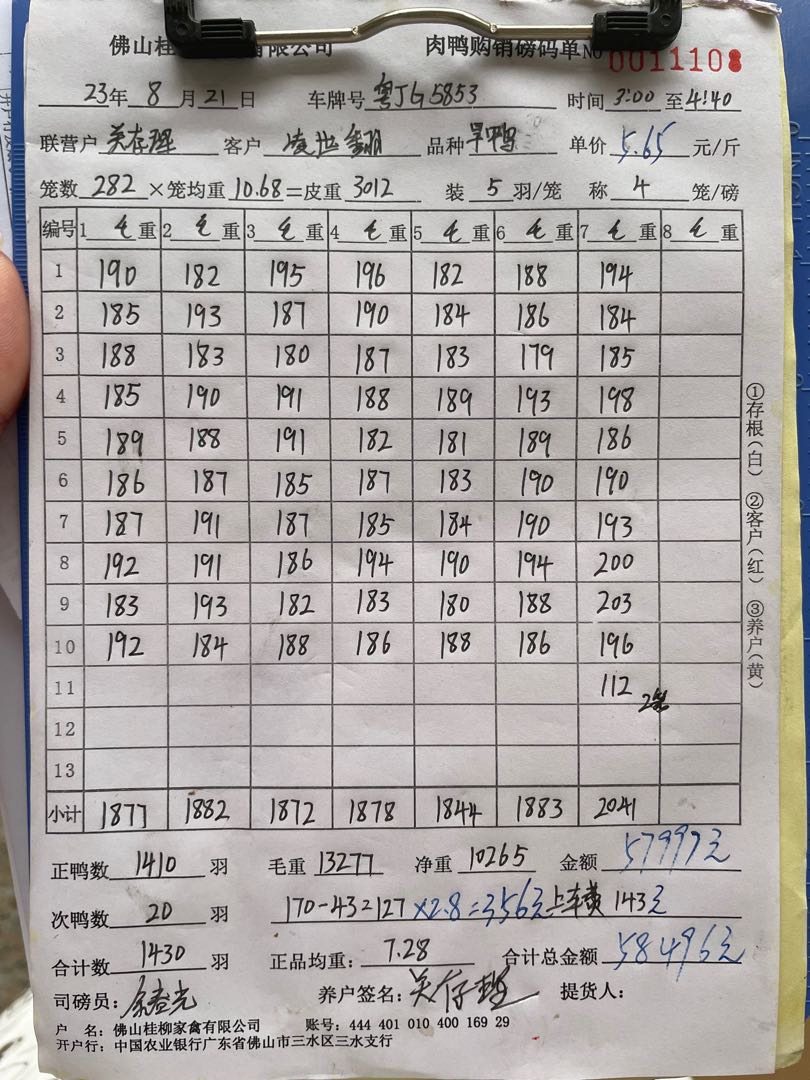 佛山桂 有限公司 肉鸭购销磅码单 NO 0011108
23年 8 月 21 日 车牌号 粤JG5853 时间 3:00 至 4:40
联营户 关存理 客户 品种 旱鸭 单价 5.65 元/斤
笼数 282 ×笼均重 10.68 =皮重 3012 装 5 羽/笼 称 4 笼/磅
编号 1 毛 重 2 毛 重 3 毛 重 4 毛 重 5 毛 重 6 毛 重 7 毛 重 8 毛 重
1 190 182 195 196 182 188 194
2 185 193 187 190 184 186 184
3 188 183 180 187 183 179 185
4 185 190 191 188 189 193 198
5 189 188 191 182 181 189 186
6 186 187 185 187 183 190 190
7 187 191 187 185 184 190 193
8 192 191 186 194 190 194 200
9 183 193 182 183 180 188 203
10 192 184 188 186 188 186 196
11 112 2笼
12
13
小计 1877 1882 1872 1878 1844 1883 2041
正鸭数 1410 羽 毛重 13277 净重 10265 金额 57997元
次鸭数 20 羽 170-43=127 ×2.8=356元 上车费 143元
合计数 1430 羽 正品均重: 7.28 合计总金额 58496元
司磅员: 养户签名: 关存理 提货人:
户 名: 佛山桂柳家禽有限公司 账号: 444 401 010 400 169 29
开户行: 中国农业银行广东省佛山市三水区三水支行
①存根(白) ②客户(红) ③养户(黄)